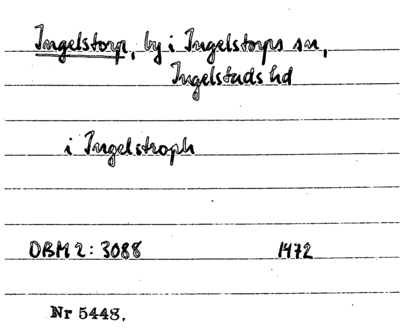 Ingelstorp, by i Ingelstorps sn,
Ingelstads hd
i Ingelstroph
OBM 2: 3088 1472
Nr 5448.